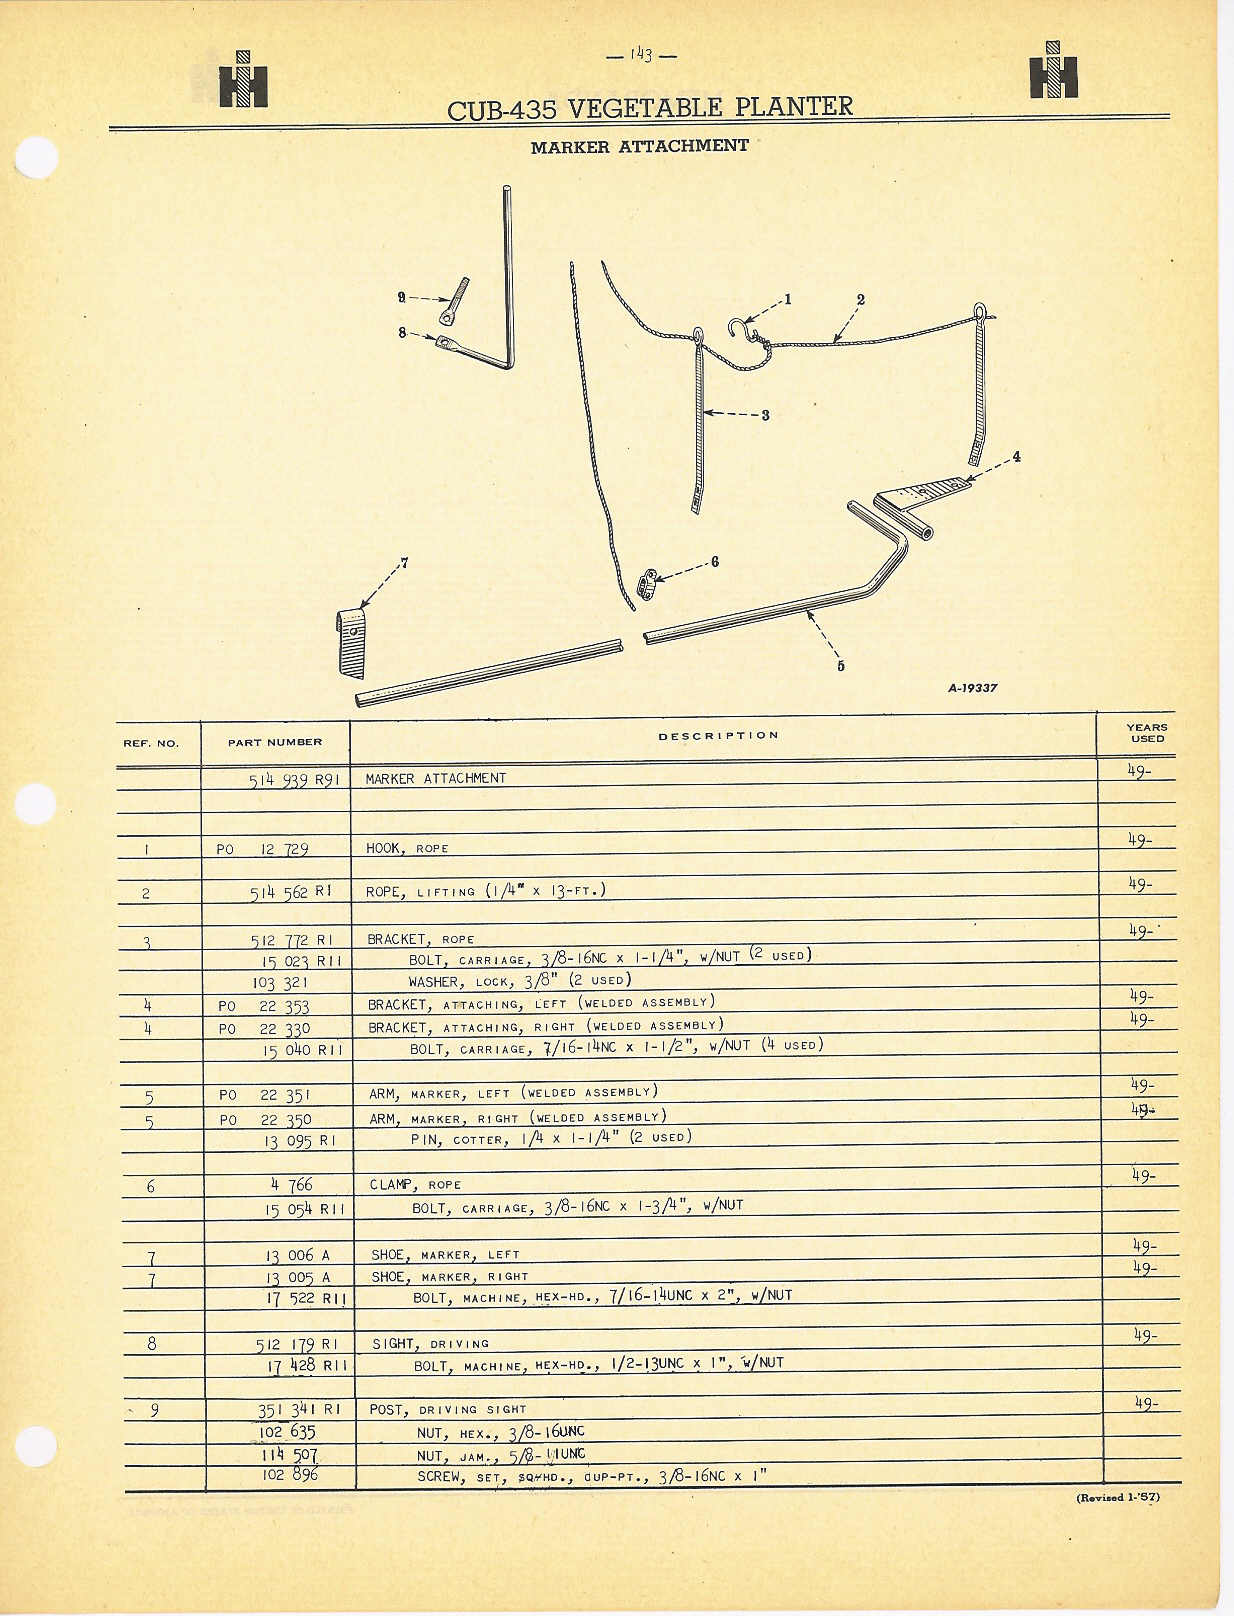 — 143 —
IH
IH
CUB-435 VEGETABLE PLANTER
MARKER ATTACHMENT
9
1
2
8
3
4
7
6
5
A-19337
REF. NO. PART NUMBER DESCRIPTION YEARS USED
514 939 R91 MARKER ATTACHMENT 49-
1 PO 12 729 HOOK, ROPE 49-
2 514 562 R1 ROPE, LIFTING (1/4" x 13-FT.) 49-
3 512 772 R1 BRACKET, ROPE 49-
15 023 R11 BOLT, CARRIAGE, 3/8-16NC x 1-1/4", w/NUT (2 USED)
103 321 WASHER, LOCK, 3/8" (2 USED)
4 PO 22 353 BRACKET, ATTACHING, LEFT (WELDED ASSEMBLY) 49-
4 PO 22 330 BRACKET, ATTACHING, RIGHT (WELDED ASSEMBLY) 49-
15 040 R11 BOLT, CARRIAGE, 7/16-14NC x 1-1/2", w/NUT (4 USED)
5 PO 22 351 ARM, MARKER, LEFT (WELDED ASSEMBLY) 49-
5 PO 22 350 ARM, MARKER, RIGHT (WELDED ASSEMBLY) 49-
13 095 R1 PIN, COTTER, 1/4 x 1-1/4" (2 USED)
6 4 766 CLAMP, ROPE 49-
15 054 R11 BOLT, CARRIAGE, 3/8-16NC x 1-3/4", w/NUT
7 13 006 A SHOE, MARKER, LEFT 49-
7 13 005 A SHOE, MARKER, RIGHT 49-
17 522 R11 BOLT, MACHINE, HEX-HD., 7/16-14UNC x 2", w/NUT
8 512 179 R1 SIGHT, DRIVING 49-
17 428 R11 BOLT, MACHINE, HEX-HD., 1/2-13UNC x 1", w/NUT
9 351 341 R1 POST, DRIVING SIGHT 49-
102 635 NUT, HEX., 3/8-16UNC
114 507 NUT, JAM., 5/8-11UNC
102 896 SCREW, SET, SQ-HD., CUP-PT., 3/8-16NC x 1"
(Revised 1-'57)